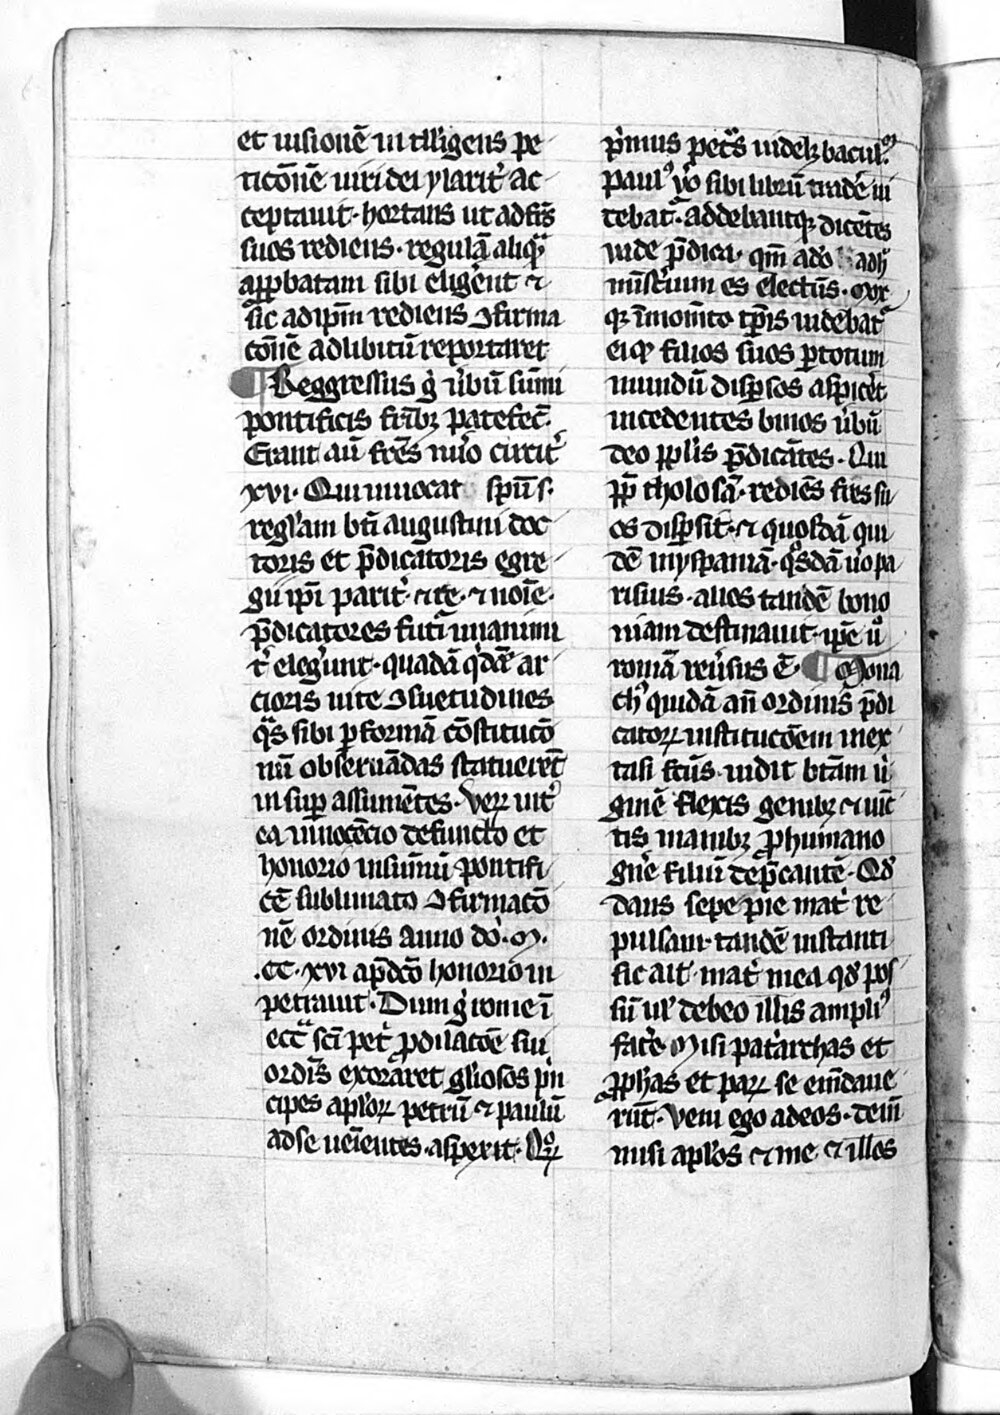 et uisionē intelligens pe
ticōnē uiri dei ylarit̾ ac
ceptauit · hortans ut ad fr̄s
suos rediens · regulā aliqᷓ
aꝓpbatam sibi eliger̄ent ⁊
sic ad ip̄m rediens ꝯfirma
cōnē ad libitū reportaret
¶ Reggressus g̾ u̾bū sūmi
pontificis frīb; patefec̄.
Erant aū fr̄es nu̾o circit̾
xvi · Qui inuocat sp̄u s̄.
regl̾am bt̄i augustini doc
toris et p̄dicatoris egre
gii ip̄i parit̾ · ⁊ re · ⁊ noīe ·
p̄dicatores futi̾ unanimi
t̾ eleg̾unt · quadā qᷓdā ar
cioris uite ꝯsuetudines
qᷓs sibi p̱ formā cōstitucō
nū obseruādas statuer̄et
insup̱ assumētes · Veꝝ int̾
ea innocēcio defuncto et
honorio in sūmū pontifi
cē sublimato ꝯfirmacō
nē ordinis anno dō · M ·
.CC · xvi ap̱dc̄o honorio in
petrauit · Dum g̾ rome ī
ecc̄a sc̄i pet̾ ꝓ dilatōe sui
ordīs exoraret gl̾iosos p̾n
cipes apl̾oꝝ petrū ⁊ paulū
ad se ueīentes · aspexit · Qͦꝝ
p̾mus petᷓs uidel; bacul̾ᵐ.
paulꝰ u̾o sibi librū trade̾ ui
tebat̾ · addebantq; dicētes
uade p̄dica · qm̄ a dō ad h̾
minist̾ium es electus · Mox
q; ī momīto tp̄is uidebat̾
eiq; filios suos p̱ totum
mundū disp̱sos aspice̾t
incedentes binos u̾bū
deo pp̄lis p̄dicātes · Qui
pp̄ tholosā · rediēs fr̄es su
os disp̱sit · ⁊ quosdā qui
dē in yspaniā · qᷓsdā u̾o pa
risius · alios tandē bono
niam destinauit · ip̄e u̾ͦ
romā reu̾sus ē · ¶ Mona
chꝰ quidā an̄ ordinis p̄di
catoꝝ institucōem in ex
tasi fc̄us · uidit btām ui̾
ginē flexis genib; ⁊ iūc
tis manib; ꝓ humano
gn̄e filiū dep̄cantē · Qd̾
dans sepe pie mat̾ re
pulsam · tandē instanti
sic ait · mat̾ mea qd̾ pos
sū ul̾ debeo illis ampliꝰ
face̾ Misi pat̾archas et
ꝓph̾as et paꝝ se em̄daue
rūt · Veni ego ad eos · dein̄
misi apl̾os ⁊ me ⁊ illos